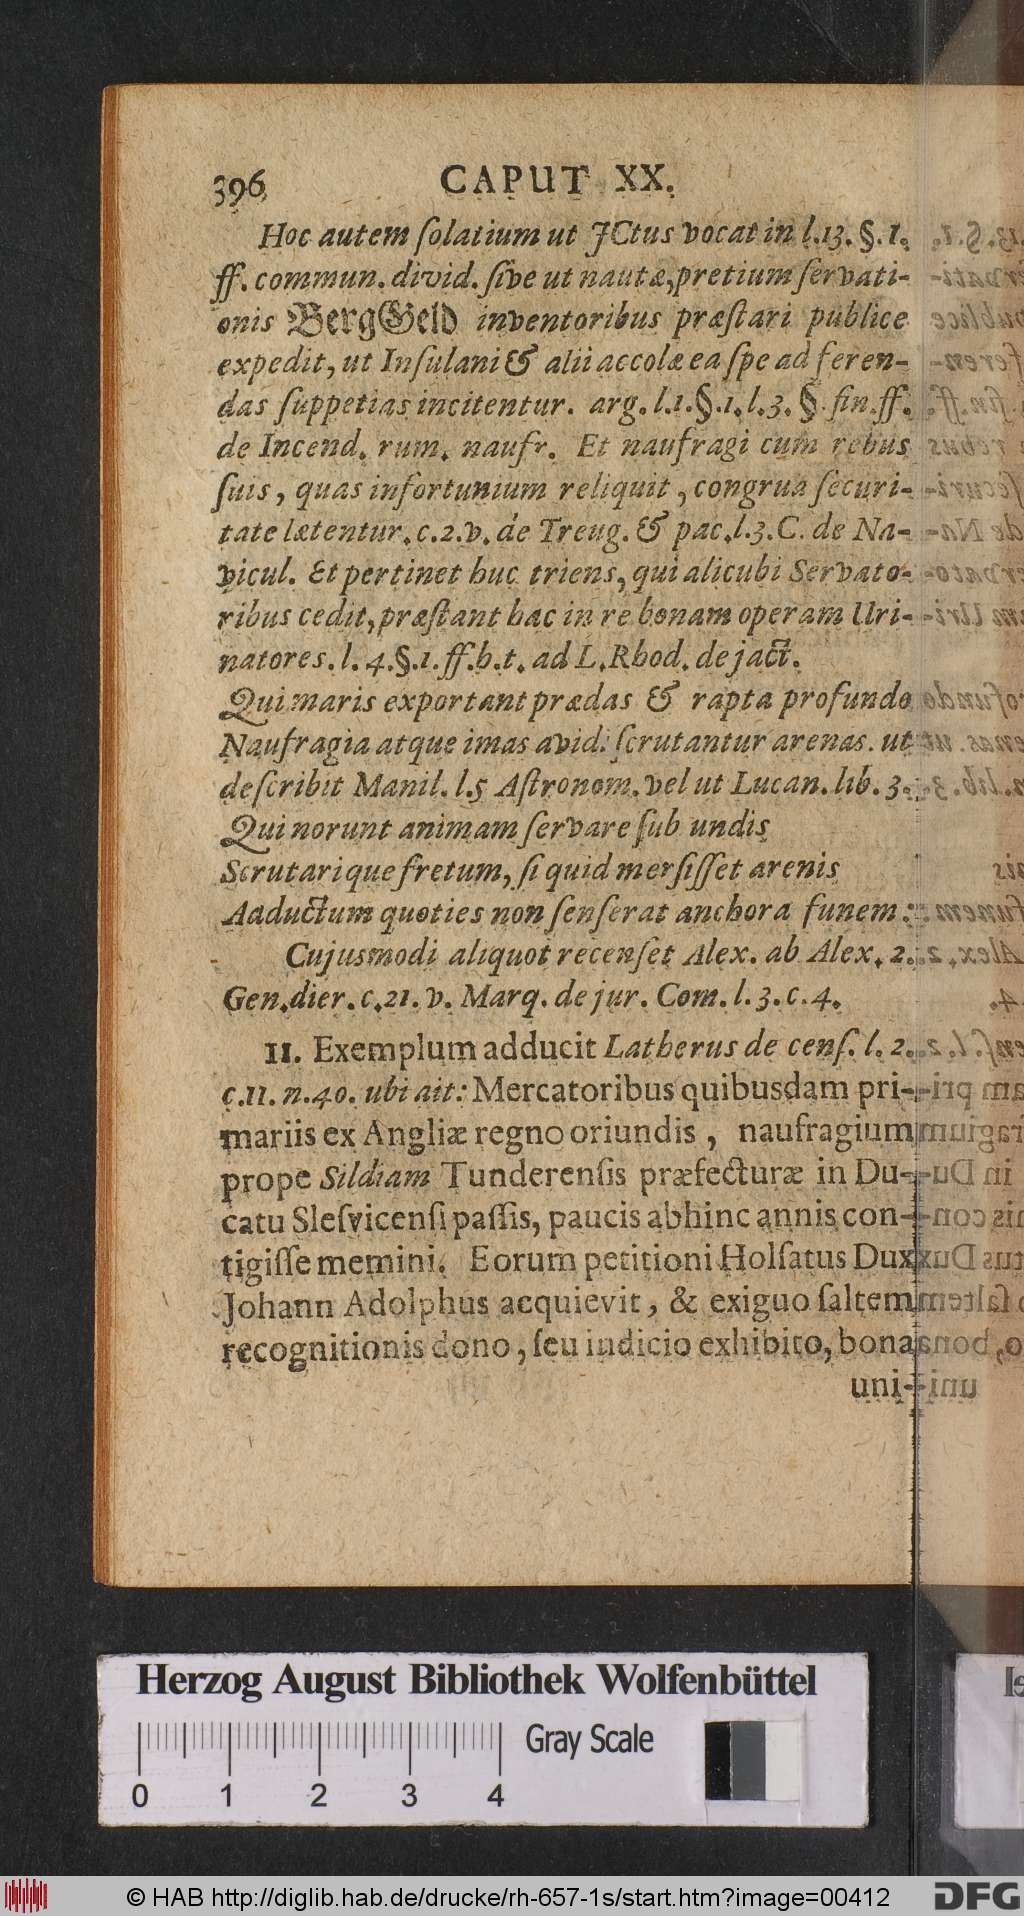 396 CAPUT XX.
Hoc autem ſolatium ut JCtus vocat in l.13. §. 1.
ff. commun. divid. ſive ut nautæ, pretium ſervati-
onis BergGeld inventoribus præſtari publice
expedit, ut Inſulani & alii accolæ ea ſpe ad feren-
das ſuppetias incitentur. arg. l.1. §.1. l.3. §. fin. ff.
de Incend. rum. naufr. Et naufragi cum rebus
ſuis, quas infortunium reliquit, congrua ſecuri-
tate lætentur. c.2. v. de Treug. & pac. l.3. C. de Na-
vicul. Et pertinet huc triens, qui alicubi Servato-
ribus cedit, præſtant hac in re bonam operam Uri-
natores. l. 4. §.1. ff. h. t. ad L. Rhod. de jact.
Qui maris exportant prædas & rapta profundo
Naufragia atque imas avid. ſcrutantur arenas. ut
deſcribit Manil. l.5 Aſtronom. vel ut Lucan. lib. 3.
Qui norunt animam ſervare ſub undis
Scrutarique fretum, ſi quid merſiſſet arenis
Aaductum quoties non ſenſerat anchora funem:
Cujusmodi aliquot recenſet Alex. ab Alex. 2.
Gen. dier. c.21. v. Marq. de jur. Com. l. 3. c. 4.
11. Exemplum adducit Latherus de cenſ. l. 2.
c.11. n.40. ubi ait: Mercatoribus quibusdam pri-
mariis ex Angliæ regno oriundis, naufragium
prope Sildiam Tunderenſis præfecturæ in Du-
catu Sleſvicenſi paſſis, paucis abhinc annis con-
tigiſſe memini. Eorum petitioni Holſatus Dux
Johann Adolphus acquievit, & exiguo ſaltem
recognitionis dono, ſeu indicio exhibito, bona
uni-
Herzog August Bibliothek Wolfenbüttel
Gray Scale
0 1 2 3 4
© HAB http://diglib.hab.de/drucke/rh-657-1s/start.htm?image=00412
DFG